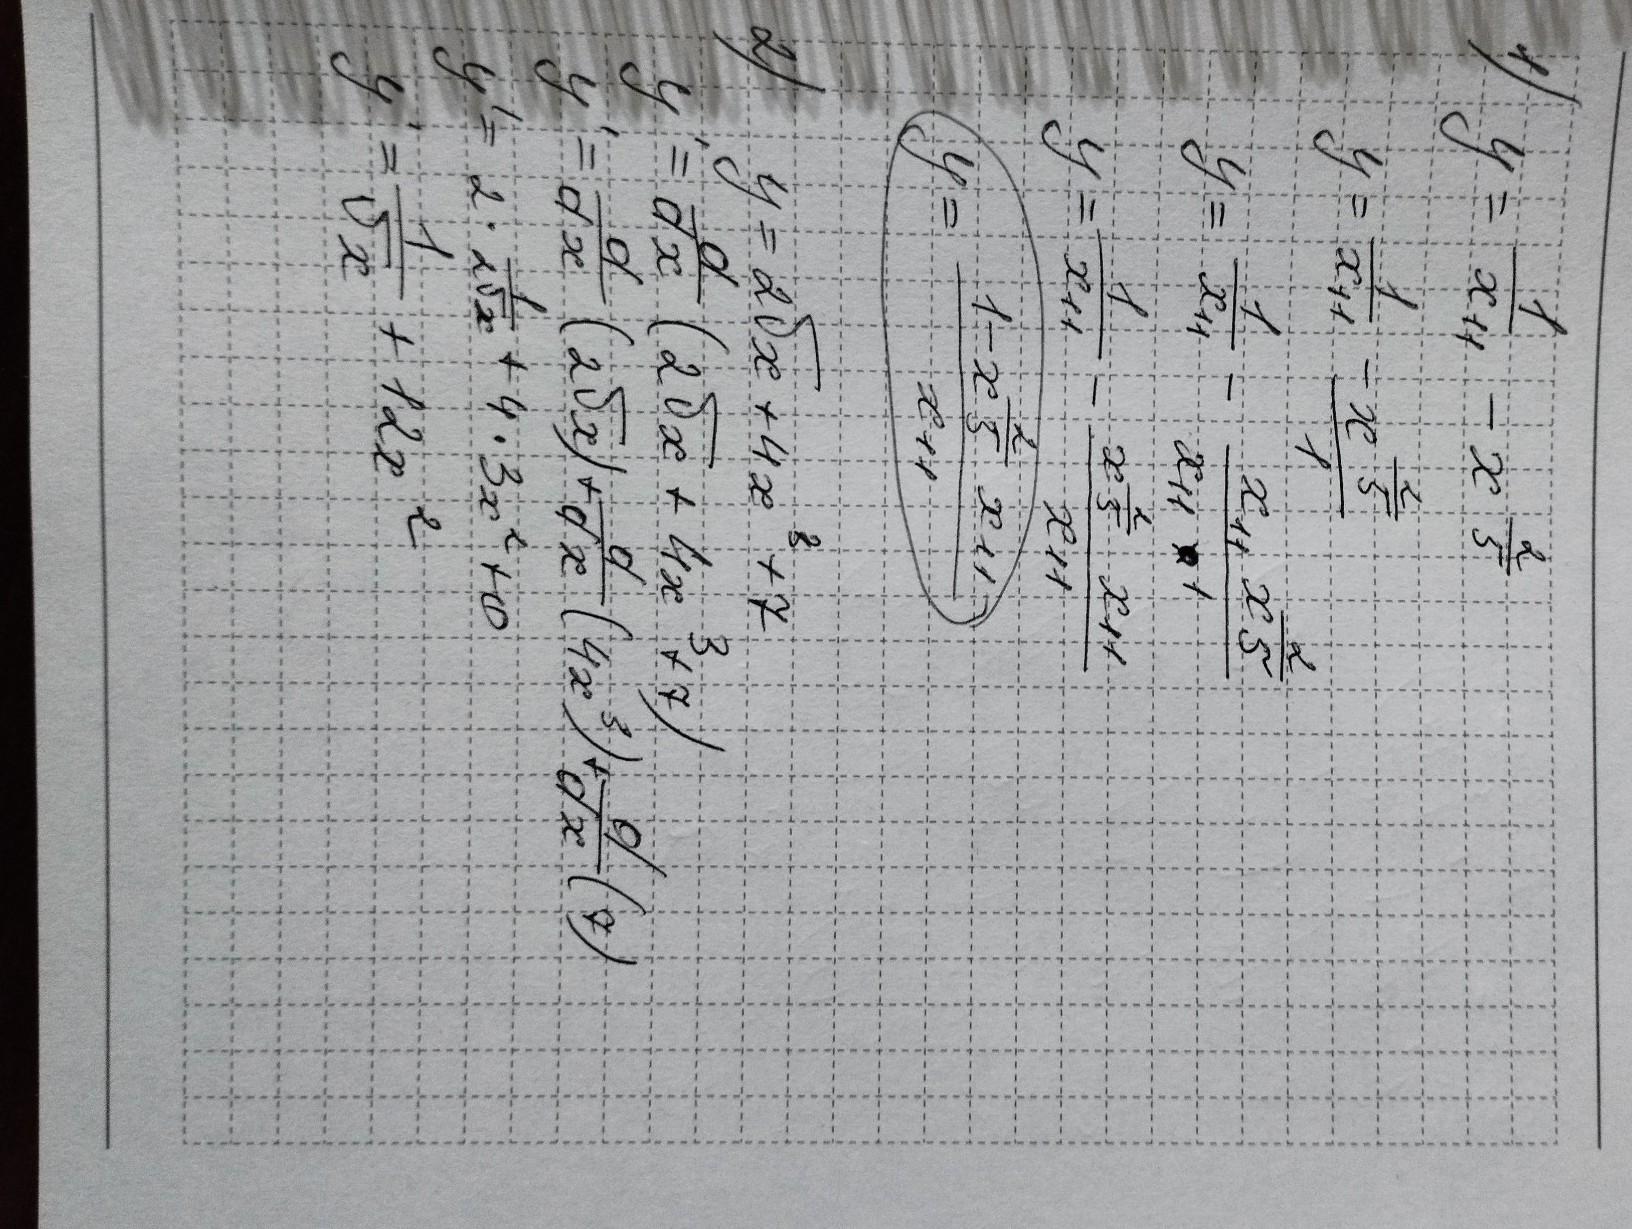 1) y = 1/x+1 - x^2/5
y = 1/x+1 - x^2/5/1
y = 1/x+1 - x+1 x^2/5/x+1 · 1
y = 1/x+1 - x^2/5 x+1/x+1
y = 1-x^2/5 x+1/x+1
2) y = 2√x + 4x^3 + 7
y' = d/dx (2√x + 4x^3 + 7)
y' = d/dx (2√x) + d/dx (4x^3) + d/dx (7)
y' = 2 · 1/2√x + 4 · 3x^2 + 0
y' = 1/√x + 12x^2